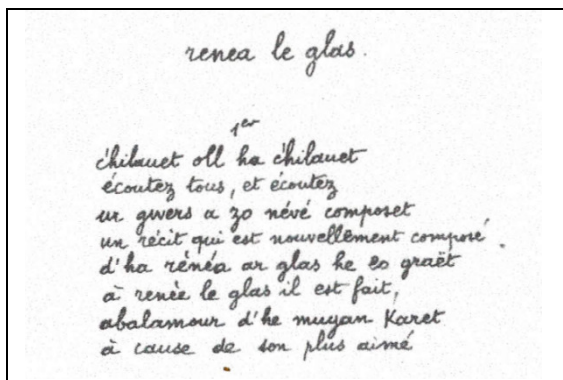 renea le glas.
1er
c'hilauet oll ha c'hilauet
écoutez tous, et écoutez
ur gwers a zo névé composet
un récit qui est nouvellement composé.
d'ha rénéa ar glas he eo graët
à renèe le glas il est fait,
abalamour d'he muyan Karet
à cause de son plus aimé